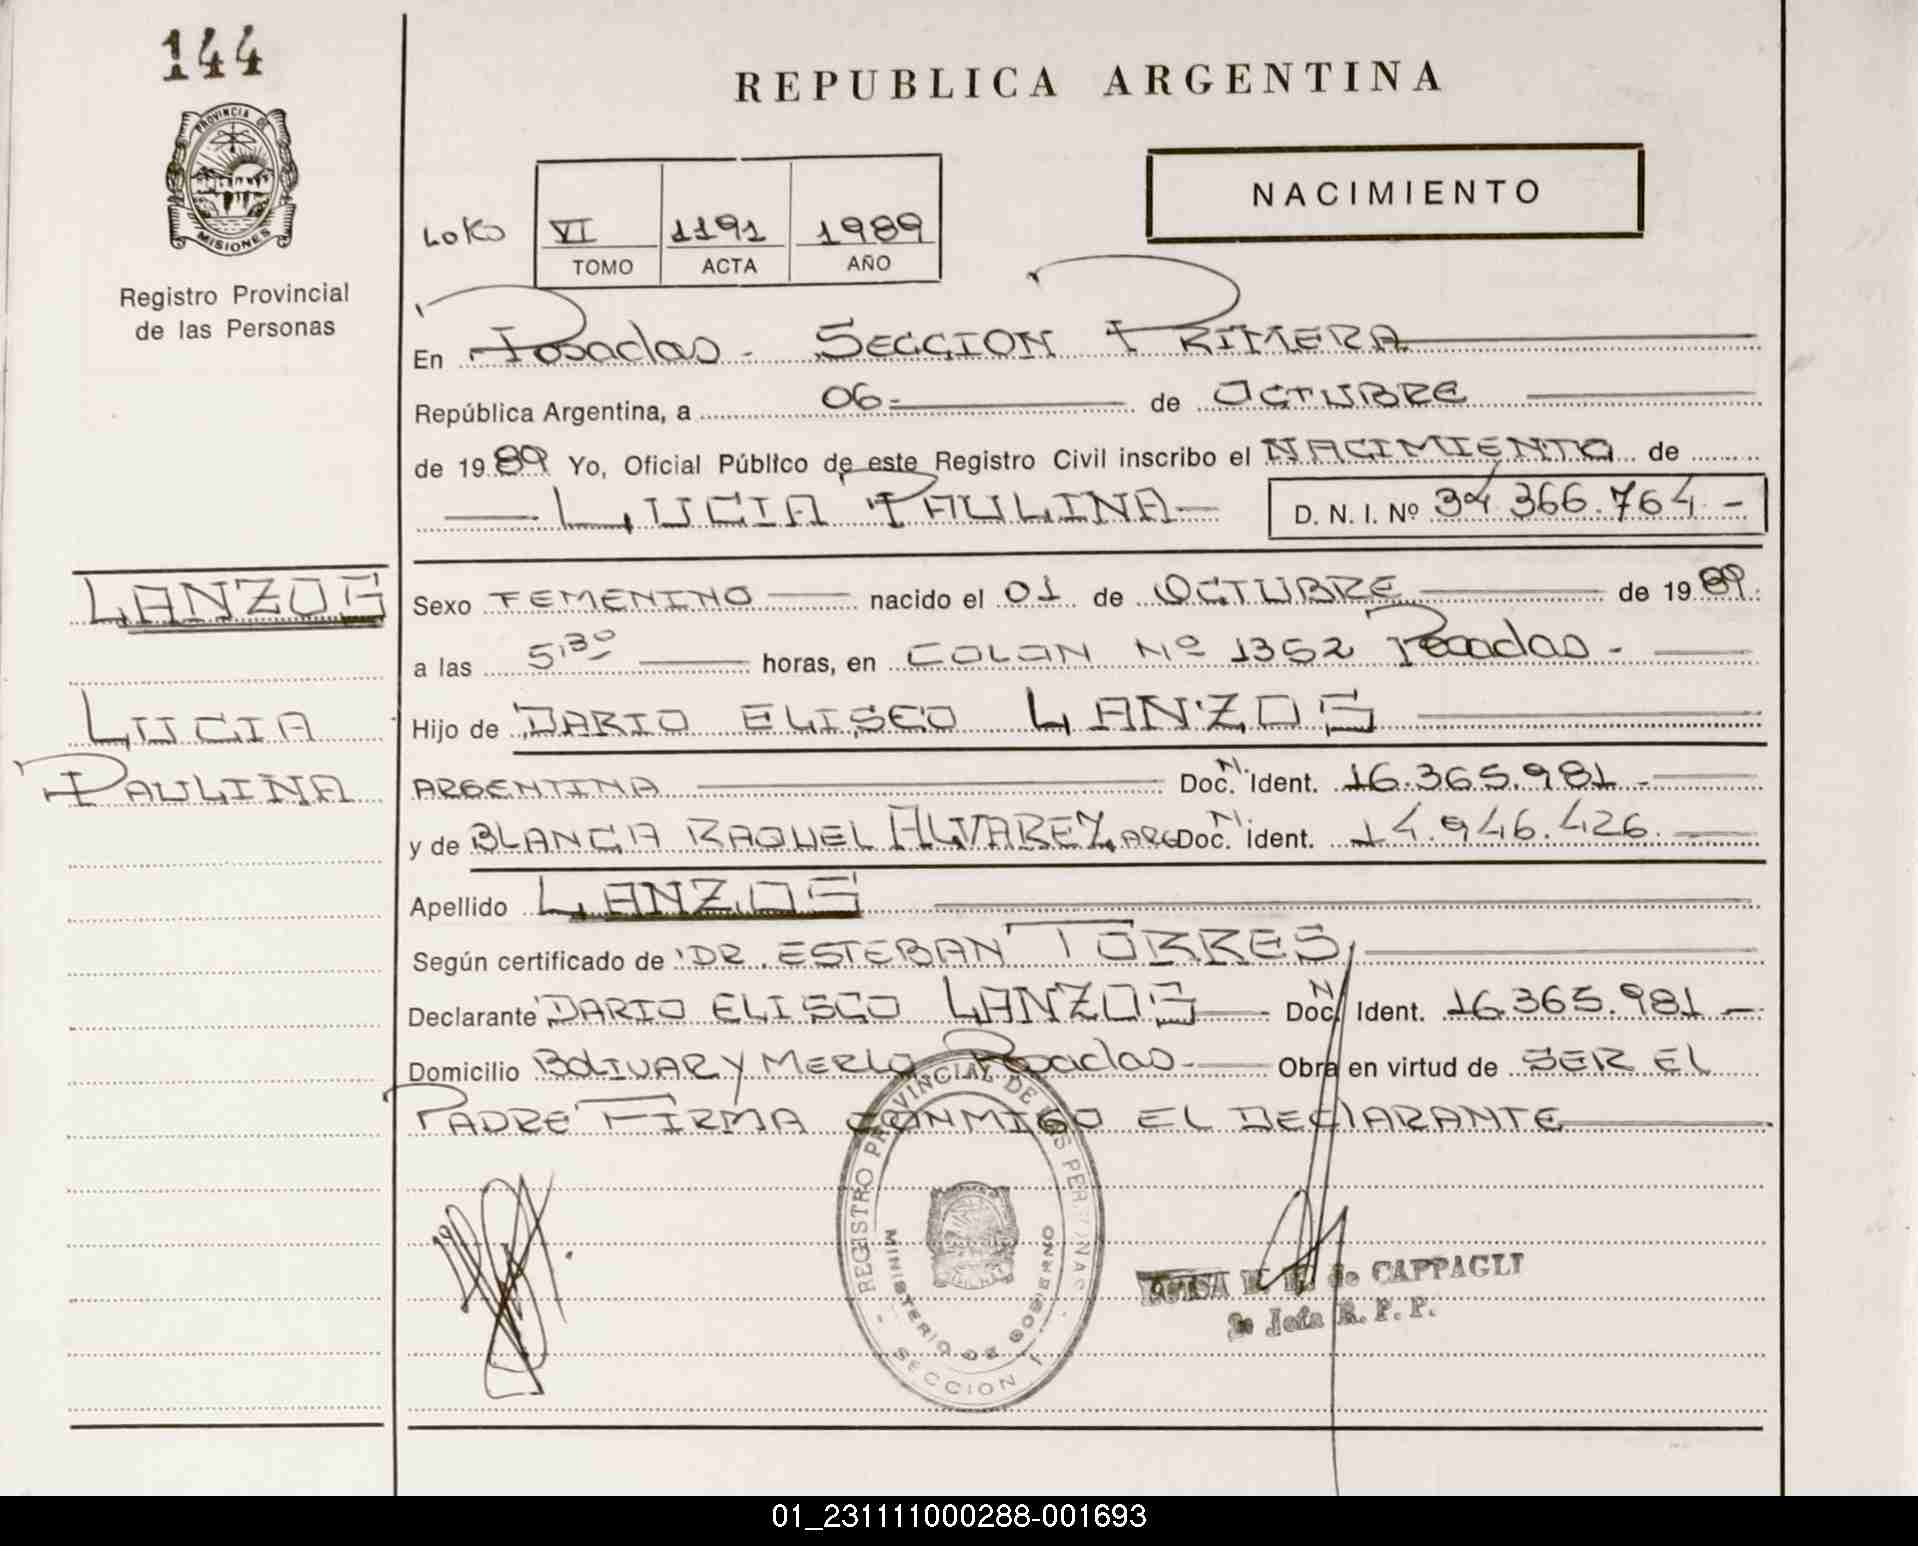 144
PROVINCIA DE
MISIONES
Registro Provincial
de las Personas
REPUBLICA ARGENTINA
NACIMIENTO
LOKO
VI 1191 1989
TOMO ACTA AÑO
En Posadas - SECCION PRIMERA
República Argentina, a 06- de OCTUBRE
de 1989 Yo, Oficial Público de este Registro Civil inscribo el NACIMIENTO de
LUCIA PAULINA D. N. I. Nº 34.366.764-
LANZOS
LUCIA
PAULINA
Sexo FEMENINO nacido el 01 de OCTUBRE de 1989
a las 5,30 horas, en COLON Nº 1352 Posadas -
Hijo de DARIO ELISEO LANZOS
ARGENTINA Doc. N. Ident. 16.365.981-
y de BLANCA RAQUEL ALVAREZ ARG Doc. N. Ident. 14.946.426.
Apellido LANZOS
Según certificado de DR. ESTEBAN TORRES
Declarante DARIO ELISEO LANZOS Doc. N Ident. 16.365.981-
Domicilio BOLIVAR Y MERLO Posadas- Obra en virtud de SER EL
PADRE FIRMA CONMIGO EL DEClARANTE
REGISTRO PROVINCIAL DE LAS PERSONAS
MINISTERIO DE GOBIERNO
- SECCION 1 -
LUISA de CAPPAGLI
Jefa R. P. P.
01_231111000288-001693